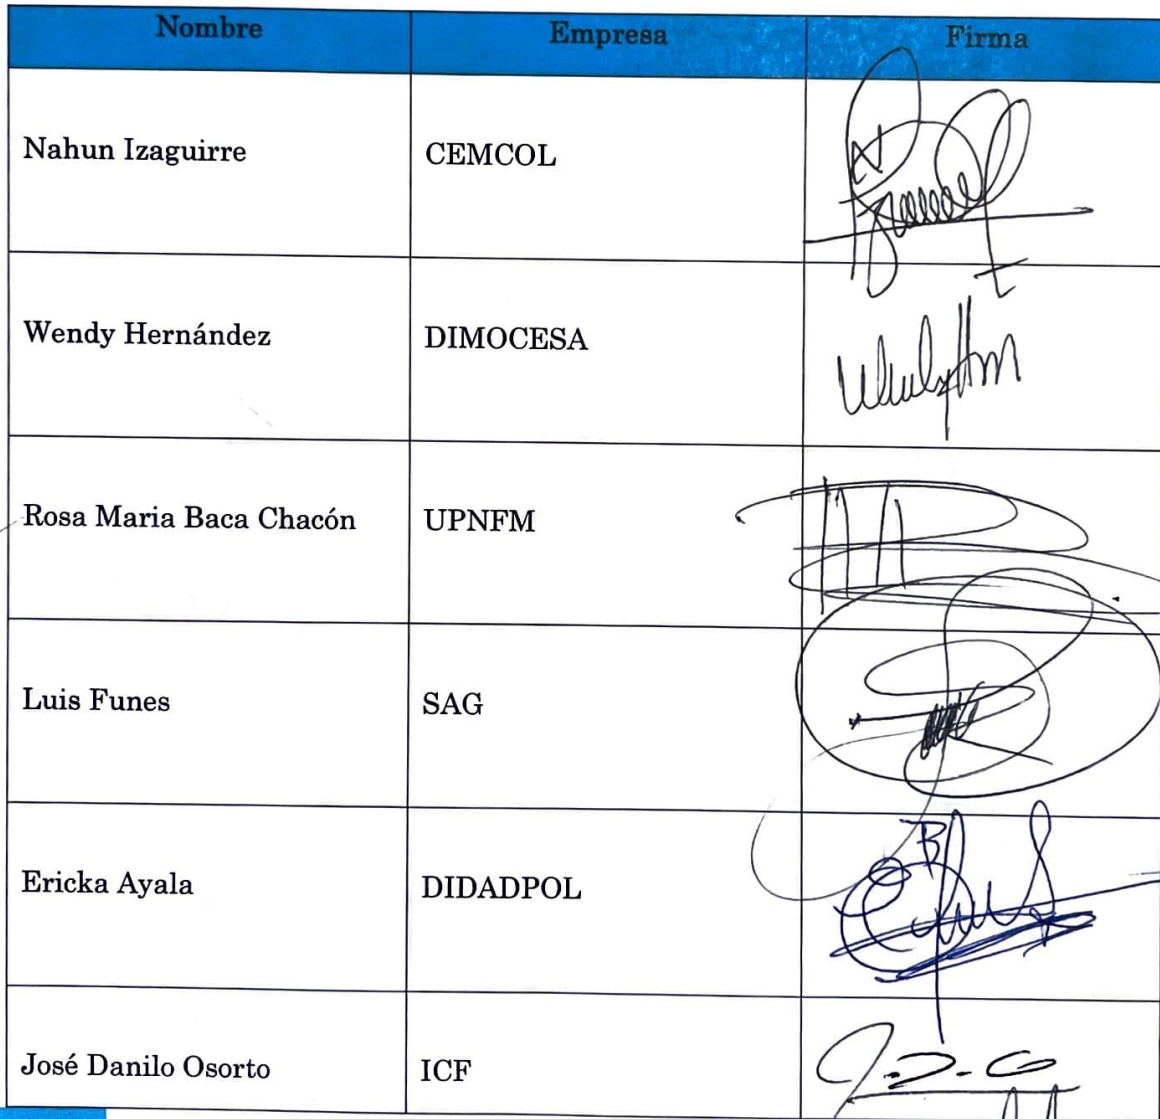 Nombre Empresa Firma
Nahun Izaguirre CEMCOL
Wendy Hernández DIMOCESA
Rosa Maria Baca Chacón UPNFM
Luis Funes SAG
Ericka Ayala DIDADPOL
José Danilo Osorto ICF